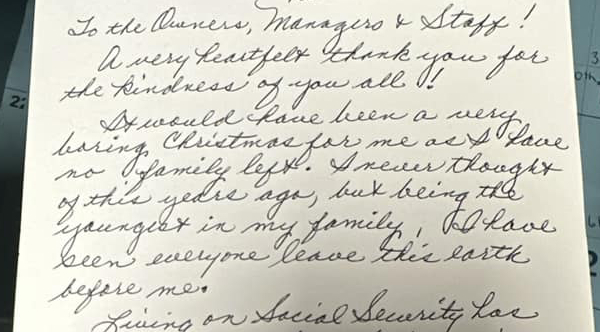 To the Owners, Managers & Staff!
A very heartfelt thank you for
the kindness of you all!
It would have been a very
boring Christmas for me as I have
no family left. I never thought
of this years ago, but being the
youngest in my family, I have
seen everyone leave this earth
before me.
Living on Social Security has